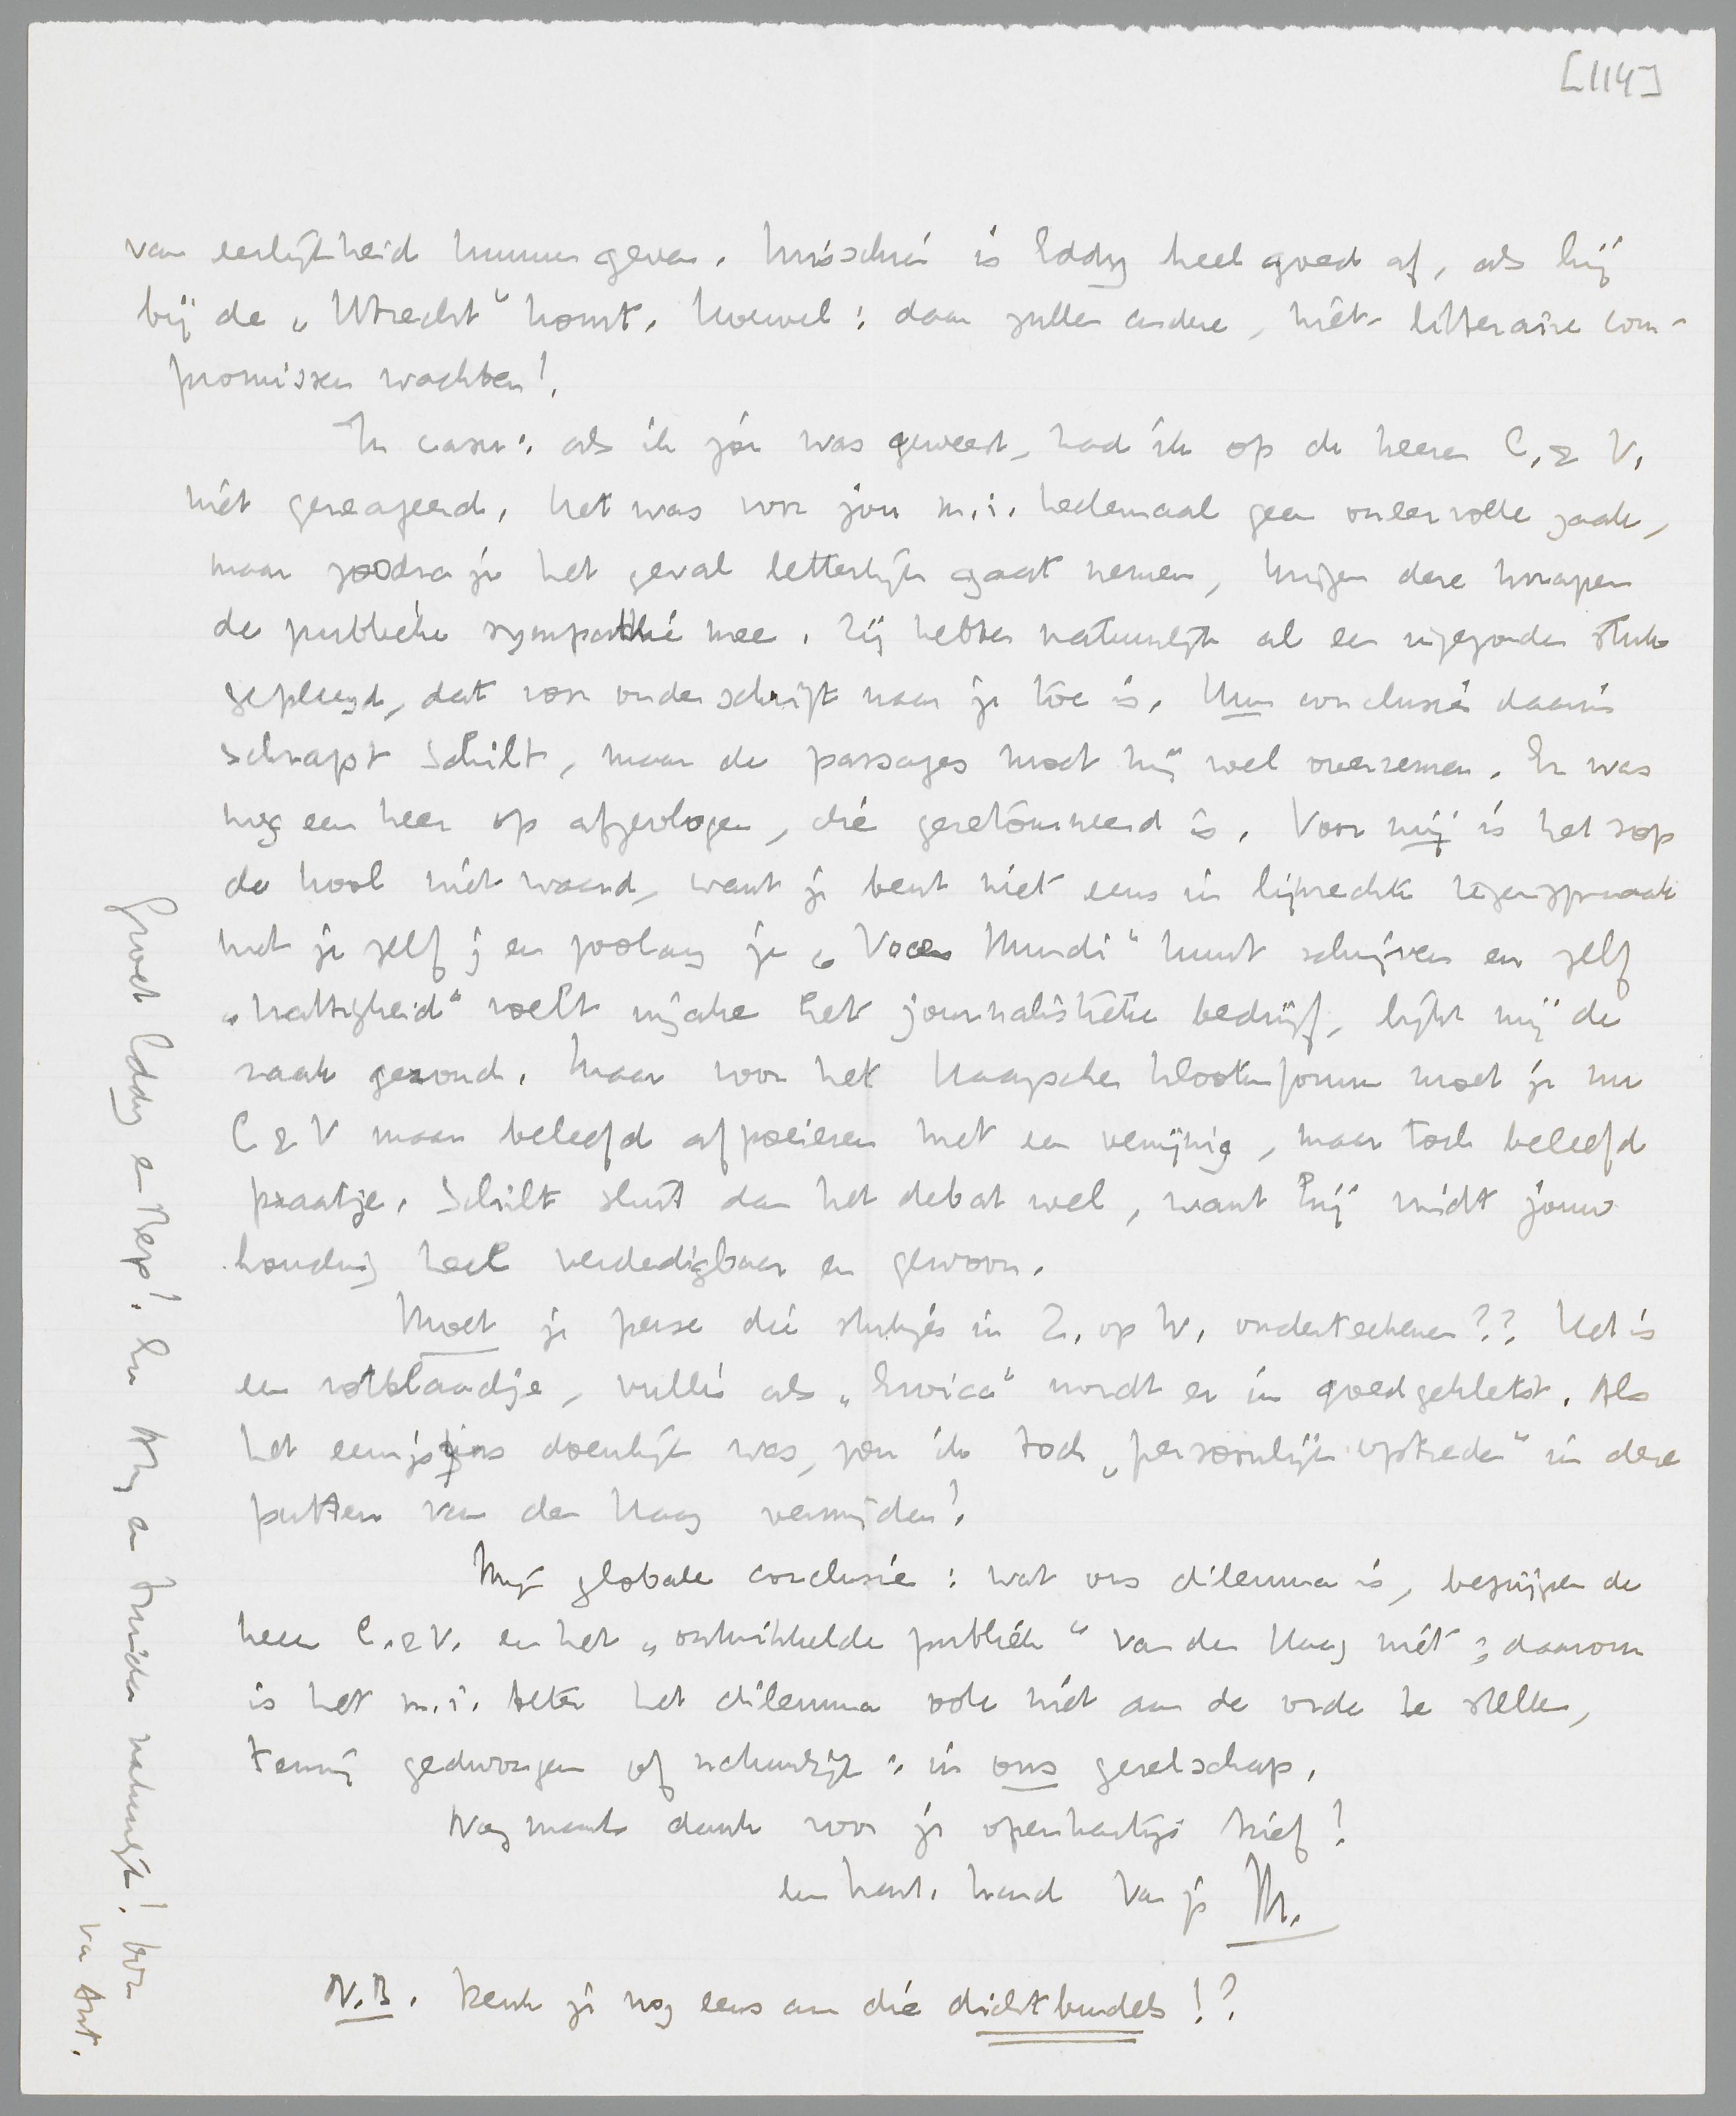 [114]
van eerlijkheid kunnen geven. Misschien is Eddy heel goed af, als hij
bij de „Utrecht" komt. Hoewel: daar zullen andere, niet-litteraire com-
promissen wachten!
In casu: als ik jou was geweest, had ik op de heeren C. & V.
niet gereageerd. Het was voor jou m.i. heelemaal geen oneervolle zaak,
maar zoodra je het geval letterlijk gaat nemen, krijgen deze knapen
de publieke sympathie mee. Zij hebben natuurlijk al een ingezonden stuk
gepleegd, dat voor onderschrift naar je toe is. Hun conclusie daarin
schrapt Schilt, maar de passages moet hij wel overnemen. Er was
nog een heer op afgevlogen, die geretourneerd is. Voor mij is het sop
de kool niet waard, want je bent niet eens in lijnrechte tegenspraak
met je zelf; en zoolang je „Voces Mundi" kunt schrijven en zelf
„nattigheid" voelt inzake het journalistieke bedrijf, lijkt mij de
zaak gezond. Maar voor het Haagsche klootenforum moet je nu
C & V maar beleefd afpoeieren met een venijnig, maar toch beleefd
praatje. Schilt sluit dan het debat wel, want hij vindt jouw
houding heel verdedigbaar en gewoon.
Moet je perse die stukjes in Z. op W. onderteekenen?? Het is
een rotblaadje, willis als „Erica" wordt er in goedgekletst. Als
het eenigszins doenlijk was, zou ik toch „persoonlijk optreden" in deze
putten van den Haag vermijden!
Mijn globale conclusie: wat ons dilemma is, begrijpen de
heer C. & V. en het „ontwikkelde publiek" van den Haag niet; daarom
is het m.i. beter het dilemma ook niet aan de orde te stellen,
tenzij gedwongen of natuurlijk: in ons gezelschap.
Nogmaals dank voor je openhartige brief!
een hart. hand van je M.
N.B. Denk je nog eens aan die dichtbundels!?
Groet Eddy en Bep! En Atty en Freddie natuurlijk! ook
van Ant.